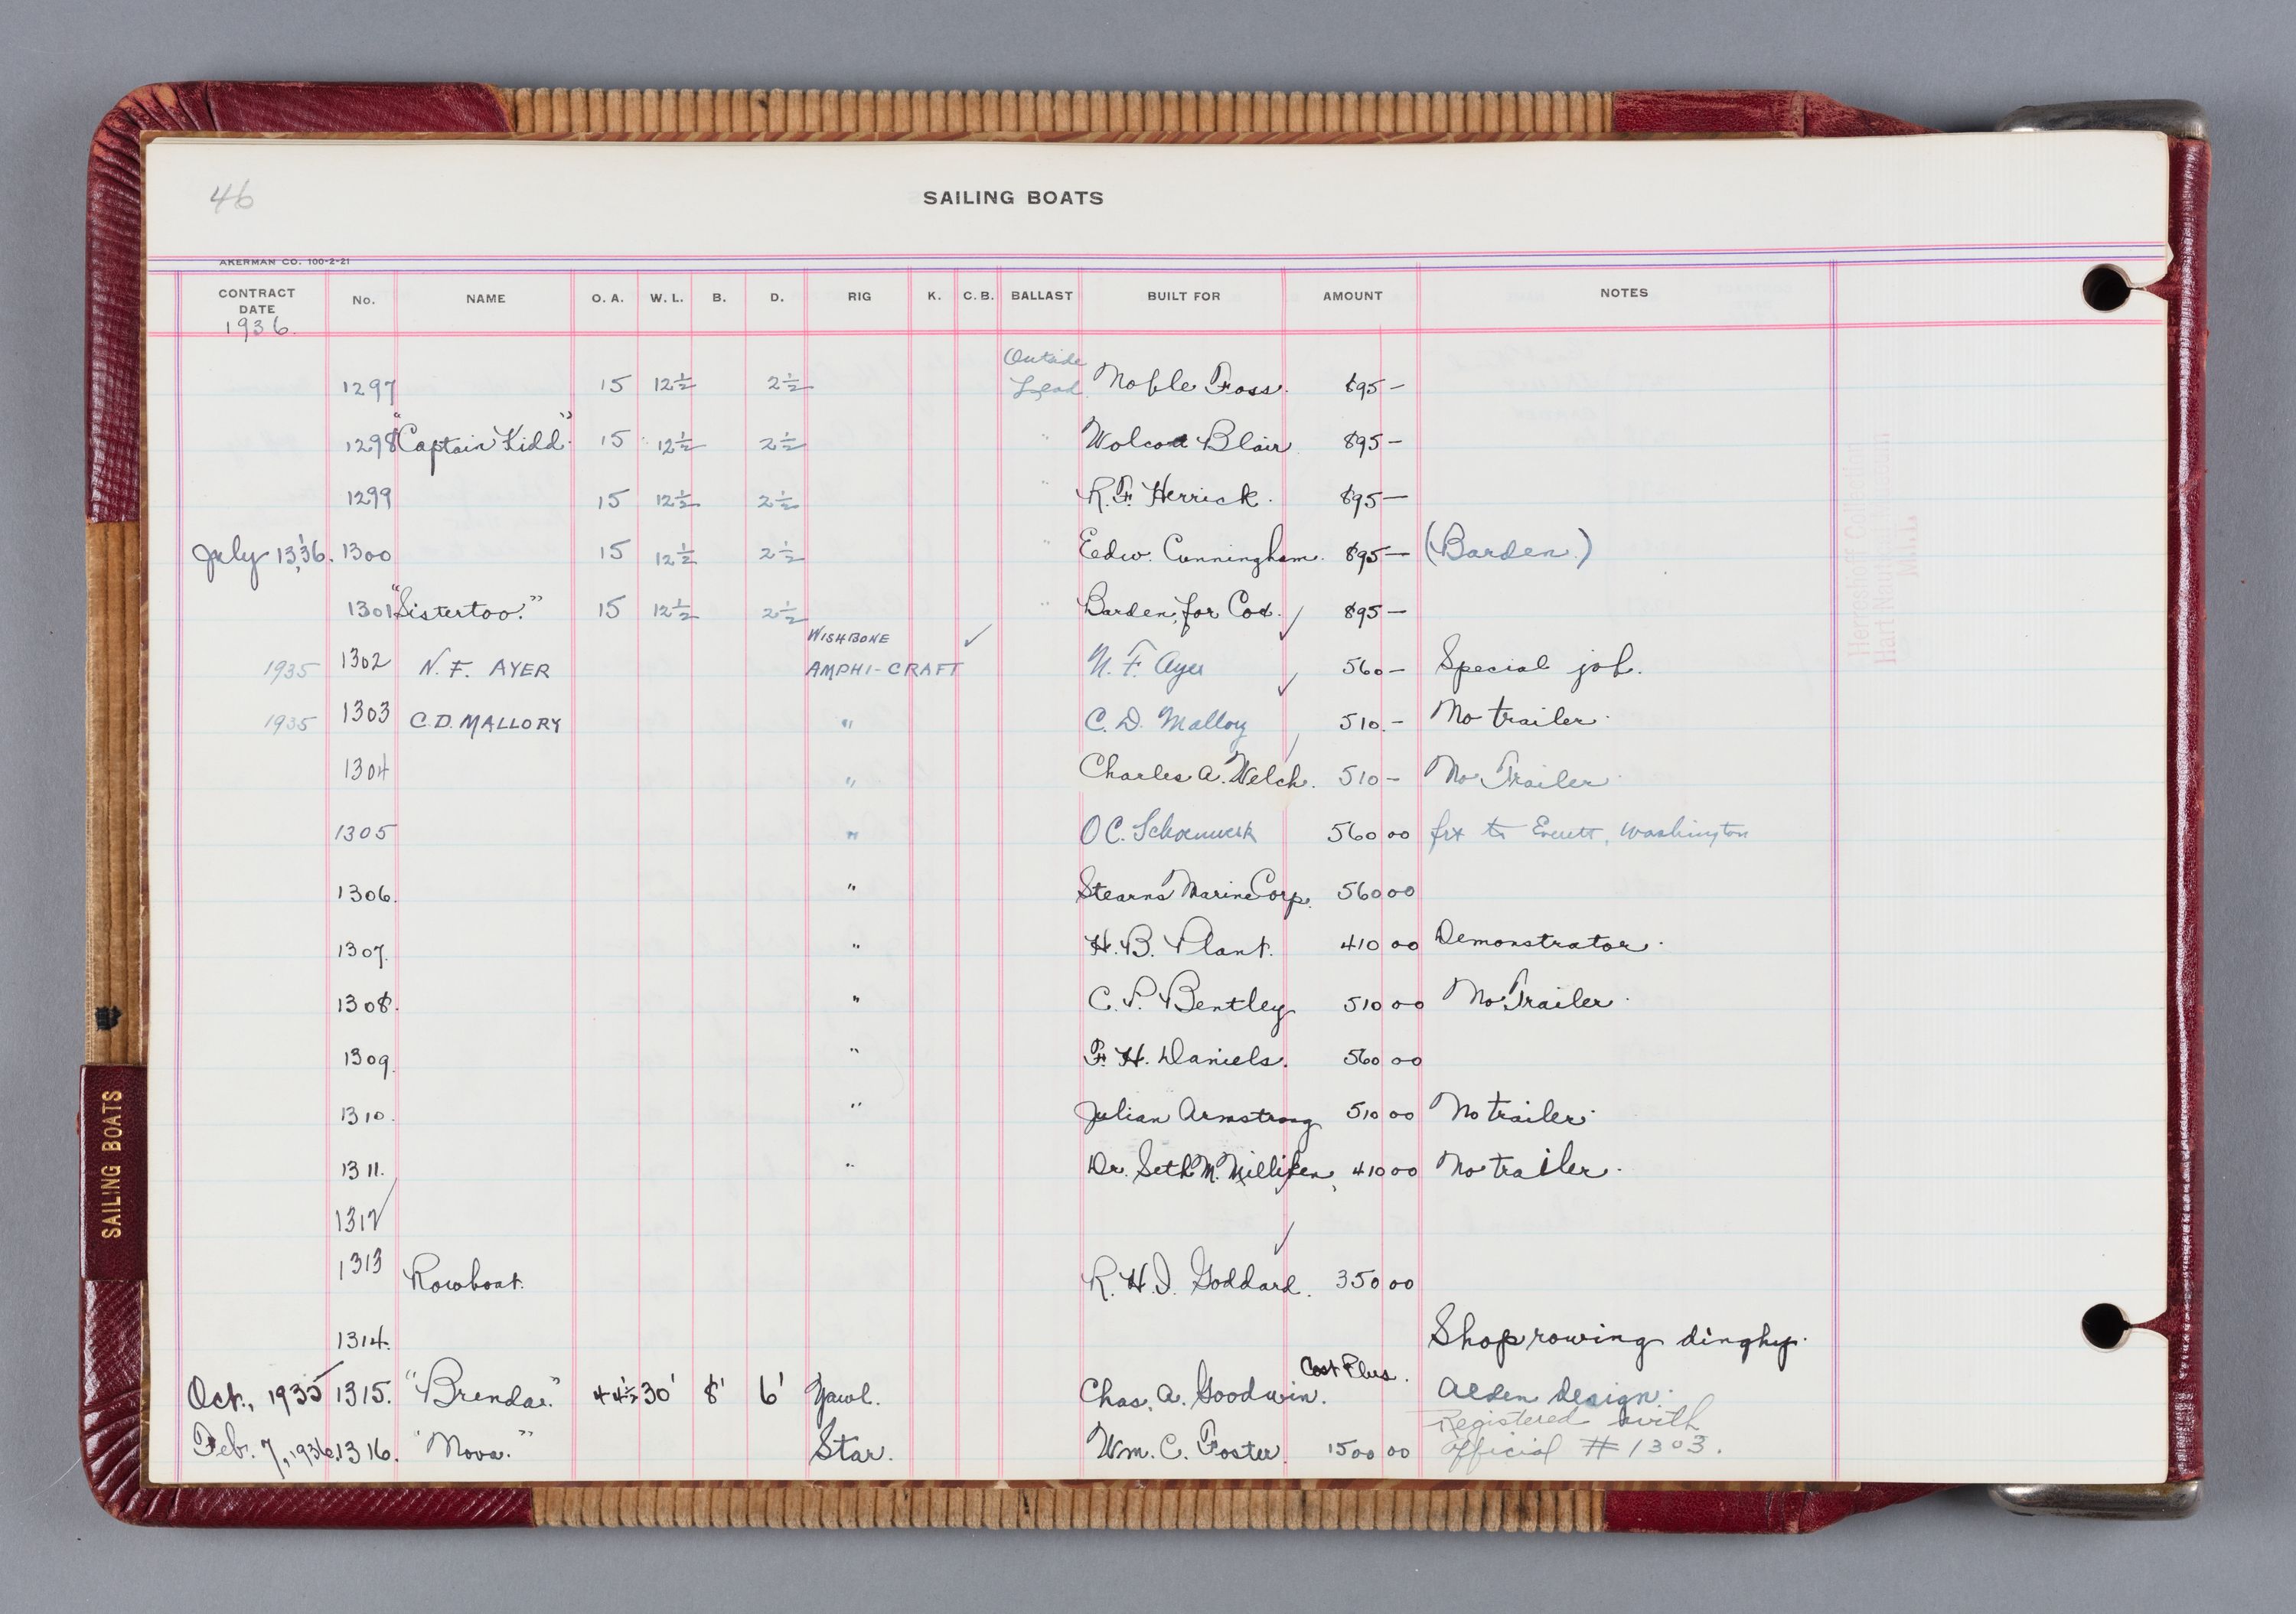 46
SAILING BOATS
AKERMAN CO. 100-2-21
CONTRACT DATE No. NAME O. A. W. L. B. D. RIG K. C. B. BALLAST BUILT FOR AMOUNT NOTES
1936.
1297 15 12½ 2½ Outside Lead Noble Foss. 895—
1298 "Captain Kidd" 15 12½ 2½ " Wolcott Blair 895—
1299 15 12½ 2½ " R. F. Herrick. 895—
July 13, '36. 1300 15 12½ 2½ " Edw. Cunningham. 895— (Barden.)
1301 "Sistertoo." 15 12½ 2½ " Barden, for Cox. ✓ 895—
1935 1302 N. F. AYER WISHBONE AMPHI-CRAFT ✓ N. F. Ayer ✓ 560— Special job.
1935 1303 C. D. MALLORY " C. D. Mallory 510.— No trailer.
1304 " Charles A. Welch. 510— No Trailer
1305 " O C. Schoenwerk 560 00 frt to Everett, Washington
1306. " Stearns Marine Corp. 560 00
1307. " H. B. Plant. 410 00 Demonstrator.
1308. " C. P. Bentley 510 00 No Trailer.
1309. " F. H. Daniels. 560 00
1310. " Julian Armstrong 510 00 No trailer.
1311. " Dr. Seth M. Milliken, 410 00 No trailer.
1312 ✓
1313 Rowboat. R. H. I. Goddard. ✓ 350 00
1314. Shop rowing dinghy.
Oct., 1935 1315. "Brenda." 44½ 30' 8' 6' Yawl. Chas. A. Goodwin. Cost Plus. Alden design.
Feb. 7, 1936. 1316. "Nova." Star. Wm. C. Foster 1500 00 Registered with official # 1303.
SAILING BOATS
Herreshoff Collection
Hart Nautical Museum
M.I.T.